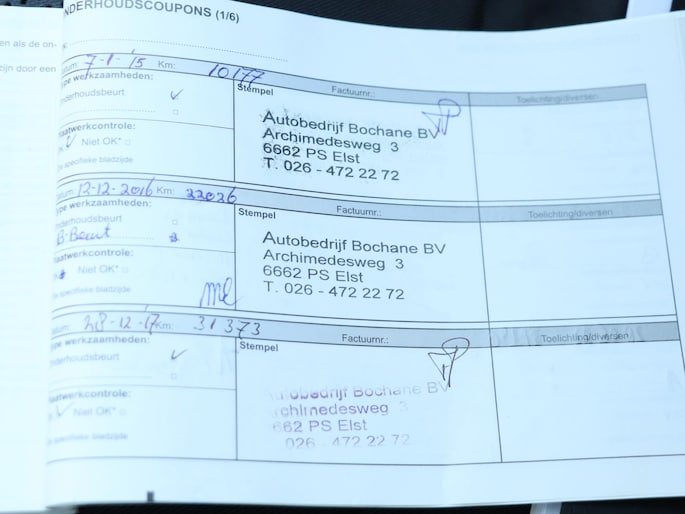 NDERHOUDSCOUPONS (1/6)
en als de on-
zijn door een
tum: 7-1-'15 Km: 10177
ype werkzaamheden:
nderhoudsbeurt
aatwerkcontrole:
Niet OK*
ie specifieke bladzijde
Stempel Factuurnr.: Toelichting/diversen
Autobedrijf Bochane BV
Archimedesweg 3
6662 PS Elst
T. 026 - 472 22 72
tum: 12-12-2016 Km: 22026
ype werkzaamheden:
nderhoudsbeurt
B-Beurt
aatwerkcontrole:
Niet OK*
ie specifieke bladzijde
Stempel Factuurnr.: Toelichting/diversen
Autobedrijf Bochane BV
Archimedesweg 3
6662 PS Elst
T. 026 - 472 22 72
tum: 28-12-'17 Km: 31373
ype werkzaamheden:
nderhoudsbeurt
aatwerkcontrole:
Niet OK*
ie specifieke bladzijde
Stempel Factuurnr.: Toelichting/diversen
utobedrijf Bochane BV
rchimedesweg 3
662 PS Elst
026 - 472 22 72